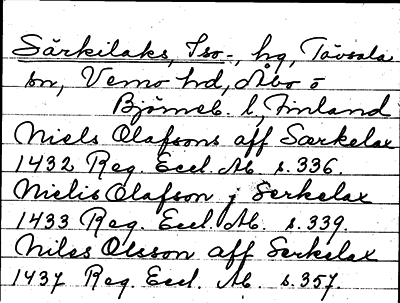 Särkilaks, Iso-, hg, Tövsala
sn, Vemo hd, Åbo o
Björneb. l, Finland
Niels Olafsons aff Særkelax
1432 Reg. Eccl. Ab. s. 336.
Nielis Olafson j Serkelax
1433 Reg. Eccl. Ab. s. 339.
Niles Olsson aff Serkelax
1437 Reg. Eccl. Ab. s. 357.